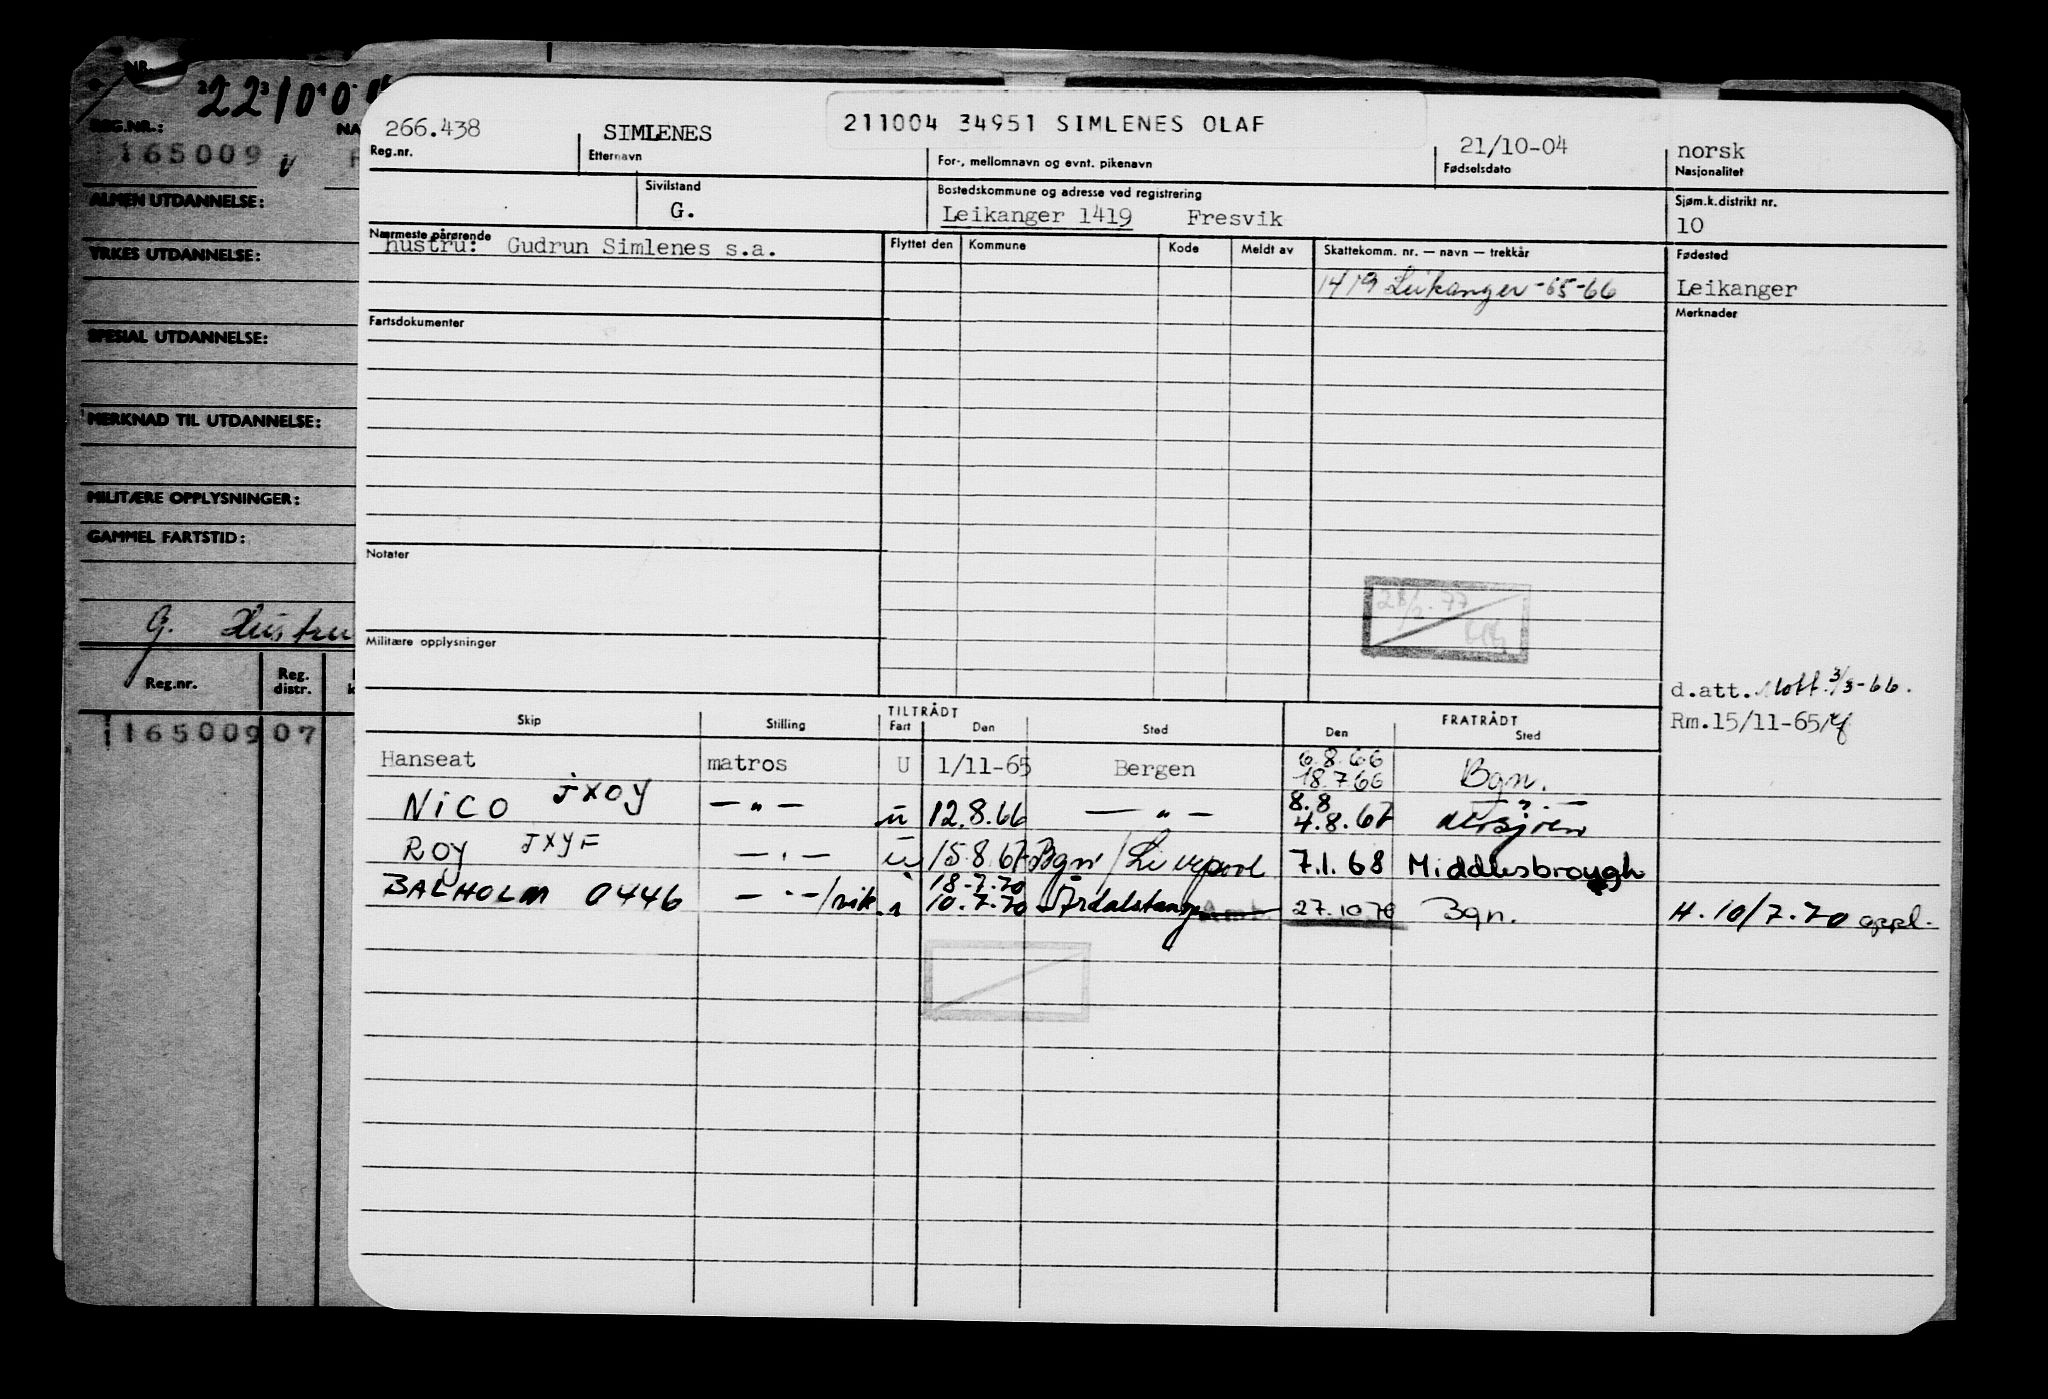 NR.
221004
REG.NR.:
NA
165009
ALMEN UTDANNELSE:
YRKES UTDANNELSE:
SPESIAL UTDANNELSE:
MERKNAD TIL UTDANNELSE:
MILITÆRE OPPLYSNINGER:
GAMMEL FARTSTID:
G. Hustru
Reg.nr. Reg. distr.
165009 07
266.438 SIMLENES 211004 34951 SIMLENES OLAF 21/10-04 norsk
Reg.nr. Etternavn For-, mellomnavn og evnt. pikenavn Fødselsdato Nasjonalitet
Sivilstand Bostedskommune og adresse ved registrering Sjøm.k.distrikt nr.
G. Leikanger 1419 Fresvik 10
Nærmeste pårørende Flyttet den Kommune Kode Meldt av Skattekomm. nr. — navn — trekkår Fødested
hustru: Gudrun Simlenes s.a.
1419 Leikanger -65-66 Leikanger
Fartsdokumenter Merknader
Notater
28/2-77
Militære opplysninger
d.att. Mott. 3/3-66.
Rm.15/11-65
Skip Stilling TILTRÅDT Fart Den Sted FRATRÅDT Den Sted
Hanseat matros U 1/11-65 Bergen 6.8.66 18.7.66 Bgn.
NICO JXOY — " — u 12.8.66 — " — 8.8 4.8.67 — " —
ROY JXYF — " — u 15.8.67 Bgn / Liverpool 7.1.68 Middlesbrough
BALHOLM 0446 — " — 18.7.70 10.7.70 Årdalstangen 27.10 70 Bgn. H. 10/7.70 oppl.